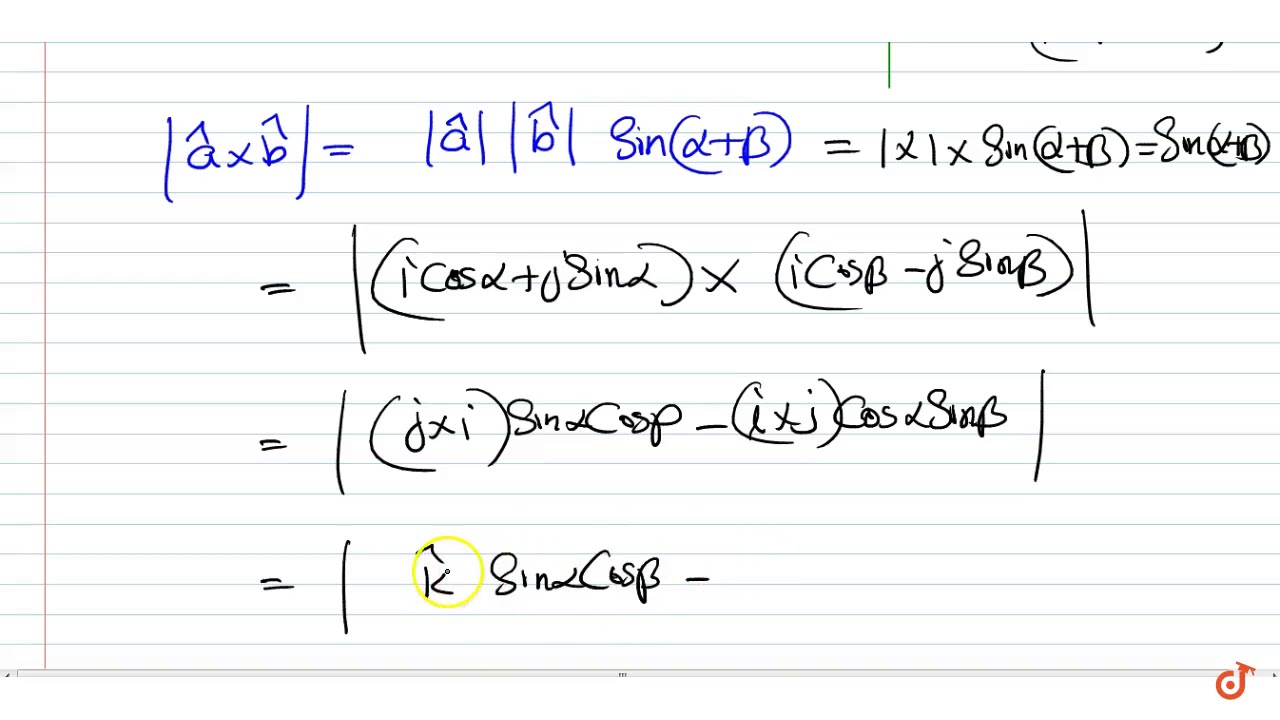 |â×b̂| = |â| |b̂| Sin(α+β) = 1×1× Sin(α+β)=Sin(α+β)
= |(i Cosα+j Sinα) × (i Cosβ - j Sinβ)|
= |(j×i) Sinα Cosβ - (i×j) Cosα Sinβ|
= | k̂ Sinα Cosβ -